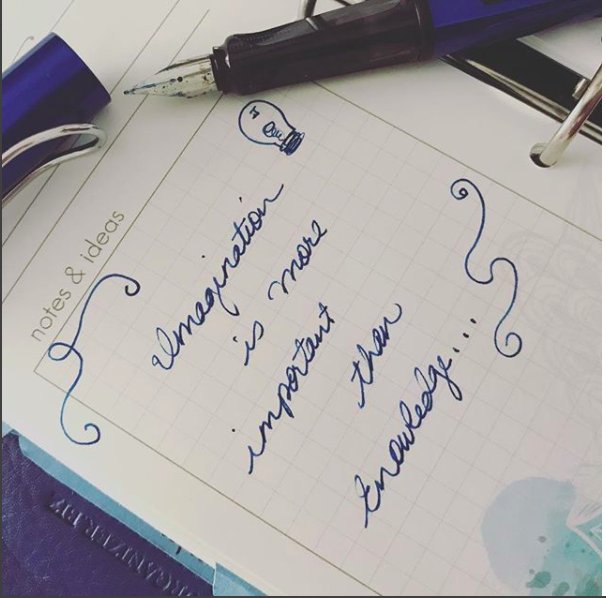 notes & ideas
Imagination
is more
important
than
knowledge...
ORGANIZER BY